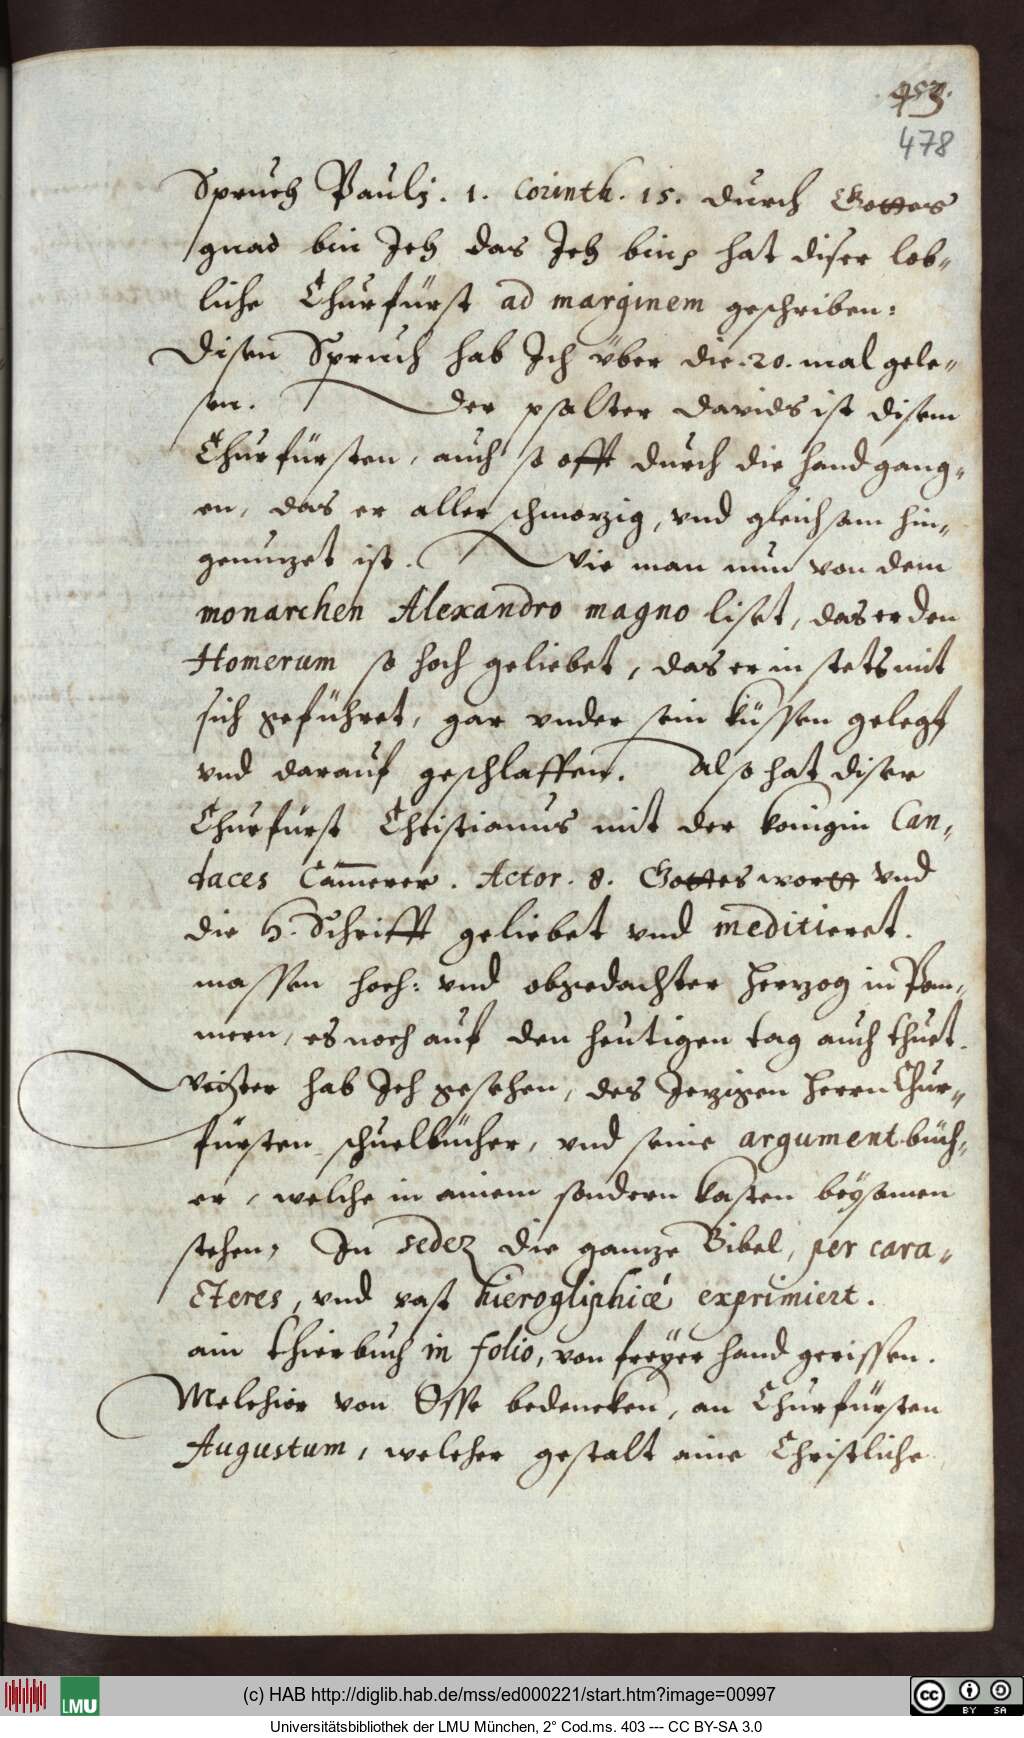 453.
478
Spruch Paulj. 1. Corinth. 15. durch Gottes
gnad bin Ich das Ich bin, hat diser lob-
liche Churfürst ad marginem geschriben:
Disen Spruch hab Ich über die .20. mal gele-
sen. Der psalter Davids ist disem
Churfürsten, auch so offt durch die hand gang-
en, das er aller schmozig, vnd gleichsam hin-
genuzet ist. Wie man nun von dem
monarchen Alexandro magno liset, das er den
Homerum so hoch geliebet, das er in stets mit
sich geführet, gar vnder sein küssen gelegt
vnd darauf geschlaffen. Also hat diser
Churfürst Christianus mit der königin Can-
daces Cam̄erer. Actor. 8. Gottes wortt vnd
die H. Schrifft geliebet vnd meditieret.
massen hoch: vnd obgedachter Herzog in Pom-
mern, es noch auf den heutigen tag auch thuet.
Weitter hab Ich gesehen, des Jezigen Herrn Chur-
fürsten schuelbücher, vnd seine argument büch-
er, welche in ainem sondern kasten beysamen
stehen, In sedez die ganze Bibel, per cara-
cteres, vnd vast hierogliphicè exprimiert.
ain thierbuch in folio, von freyer hand gerissen.
Melchior von Osse bedencken, an Churfürsten
Augustum, welcher gestalt aine Christliche
(c) HAB http://diglib.hab.de/mss/ed000221/start.htm?image=00997
LMU
CC BY SA
Universitätsbibliothek der LMU München, 2° Cod.ms. 403 --- CC BY-SA 3.0